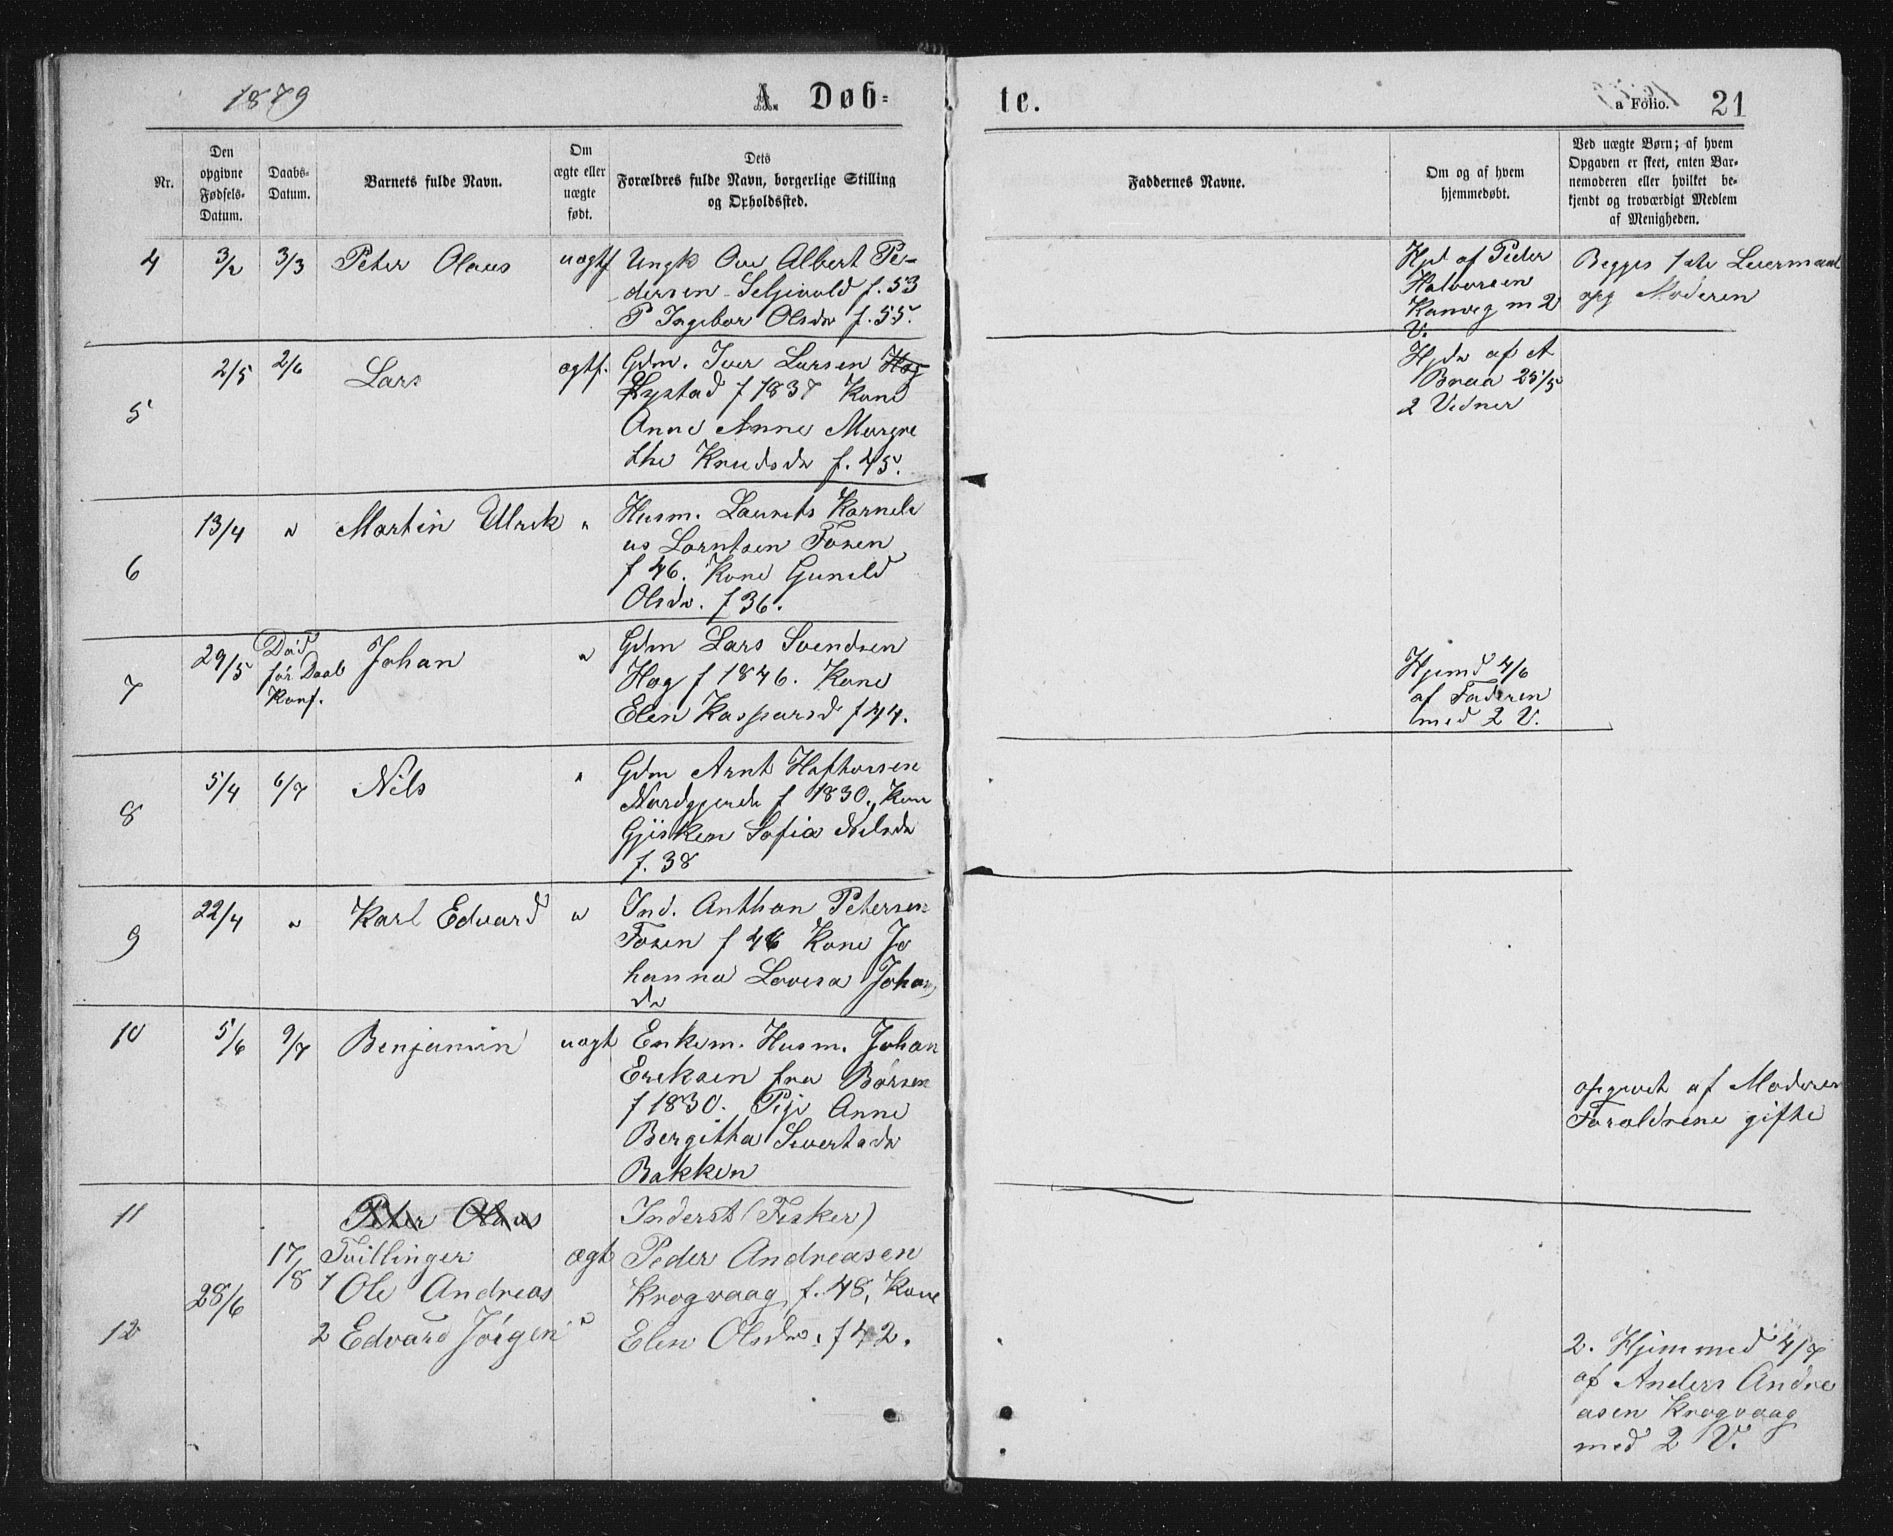 1879
A. Døb=
te.
a Folio. 21
Nr.
Den opgivne Fødsels-Datum.
Daabs-Datum.
Barnets fulde Navn.
Om ægte eller uægte født.
Dets Forældres fulde Navn, borgerlige Stilling og Opholdssted.
Faddernes Navne.
Om og af hvem hjemmedøbt.
Ved uægte Børn; af hvem Opgaven er skeet, enten Barnemoderen eller hvilket bekjendt og troværdigt Medlem af Menigheden.
4 3/2 3/3 Peter Olaus uægtf Ungk Ove Albert Pe-
dersen Seljevold f. 53
P Ingebor Olsdr f. 55.
Hjd af Peder
Halvorsen
Kanveg m 2
V.
Begges 1ste Leiermaal
opg Moderen
5 2/5 2/6 Lars ægtf. Gdm. Iver Larsen Hog
Lystad f 1837 Kone
Anne Anne Margre
the Knudsdr f. 45.
Hjdø af A
Braa 25/5
2 Vidner
6 13/4 " Martin Ulrik " Husm. Laurits Korneli
us Lorntsen Fosen
f 46. Kone Gunild
Olsdr. f 36.
7 29/5 Død
før Daab
Konf.
Johan " Gdm Lars Svendsen
Hog f 1846. Kone
Elen Kaspersd f 44.
Hjemd 4/6
af Faderen
med 2 V.
8 5/4 6/7 Nils " Gdm Arnt Haftorsen
Nordgjerde f 1830. Kone
Gjisken Sofia Nilsdr
f. 38
9 22/4 " Karl Edvard " Ind. Anthon Petersen
Fosen f 46 Kone Jo
hanna Lovisa Johan
dr
10 5/6 9/7 Benjamin uægt Enkem. Husm. Johan
Eriksen fra Børsen
f 1830. Pige Anne
Bergitha Sivertsdr
Bakken
opgivet af Moderen
Forældrene gifte
11 Peter Olaus Inderst (Fisker)
17/8 Tvillinger ægt Peder Andreasen
28/6 1 Ole Andreas Krogvaag f. 48, Kone
12 2 Edvard Jørgen " Elen Olsdr. f 42.
2. Hjemmed 4/7
af Anders Andre
asen Krogvaag
med 2 V.